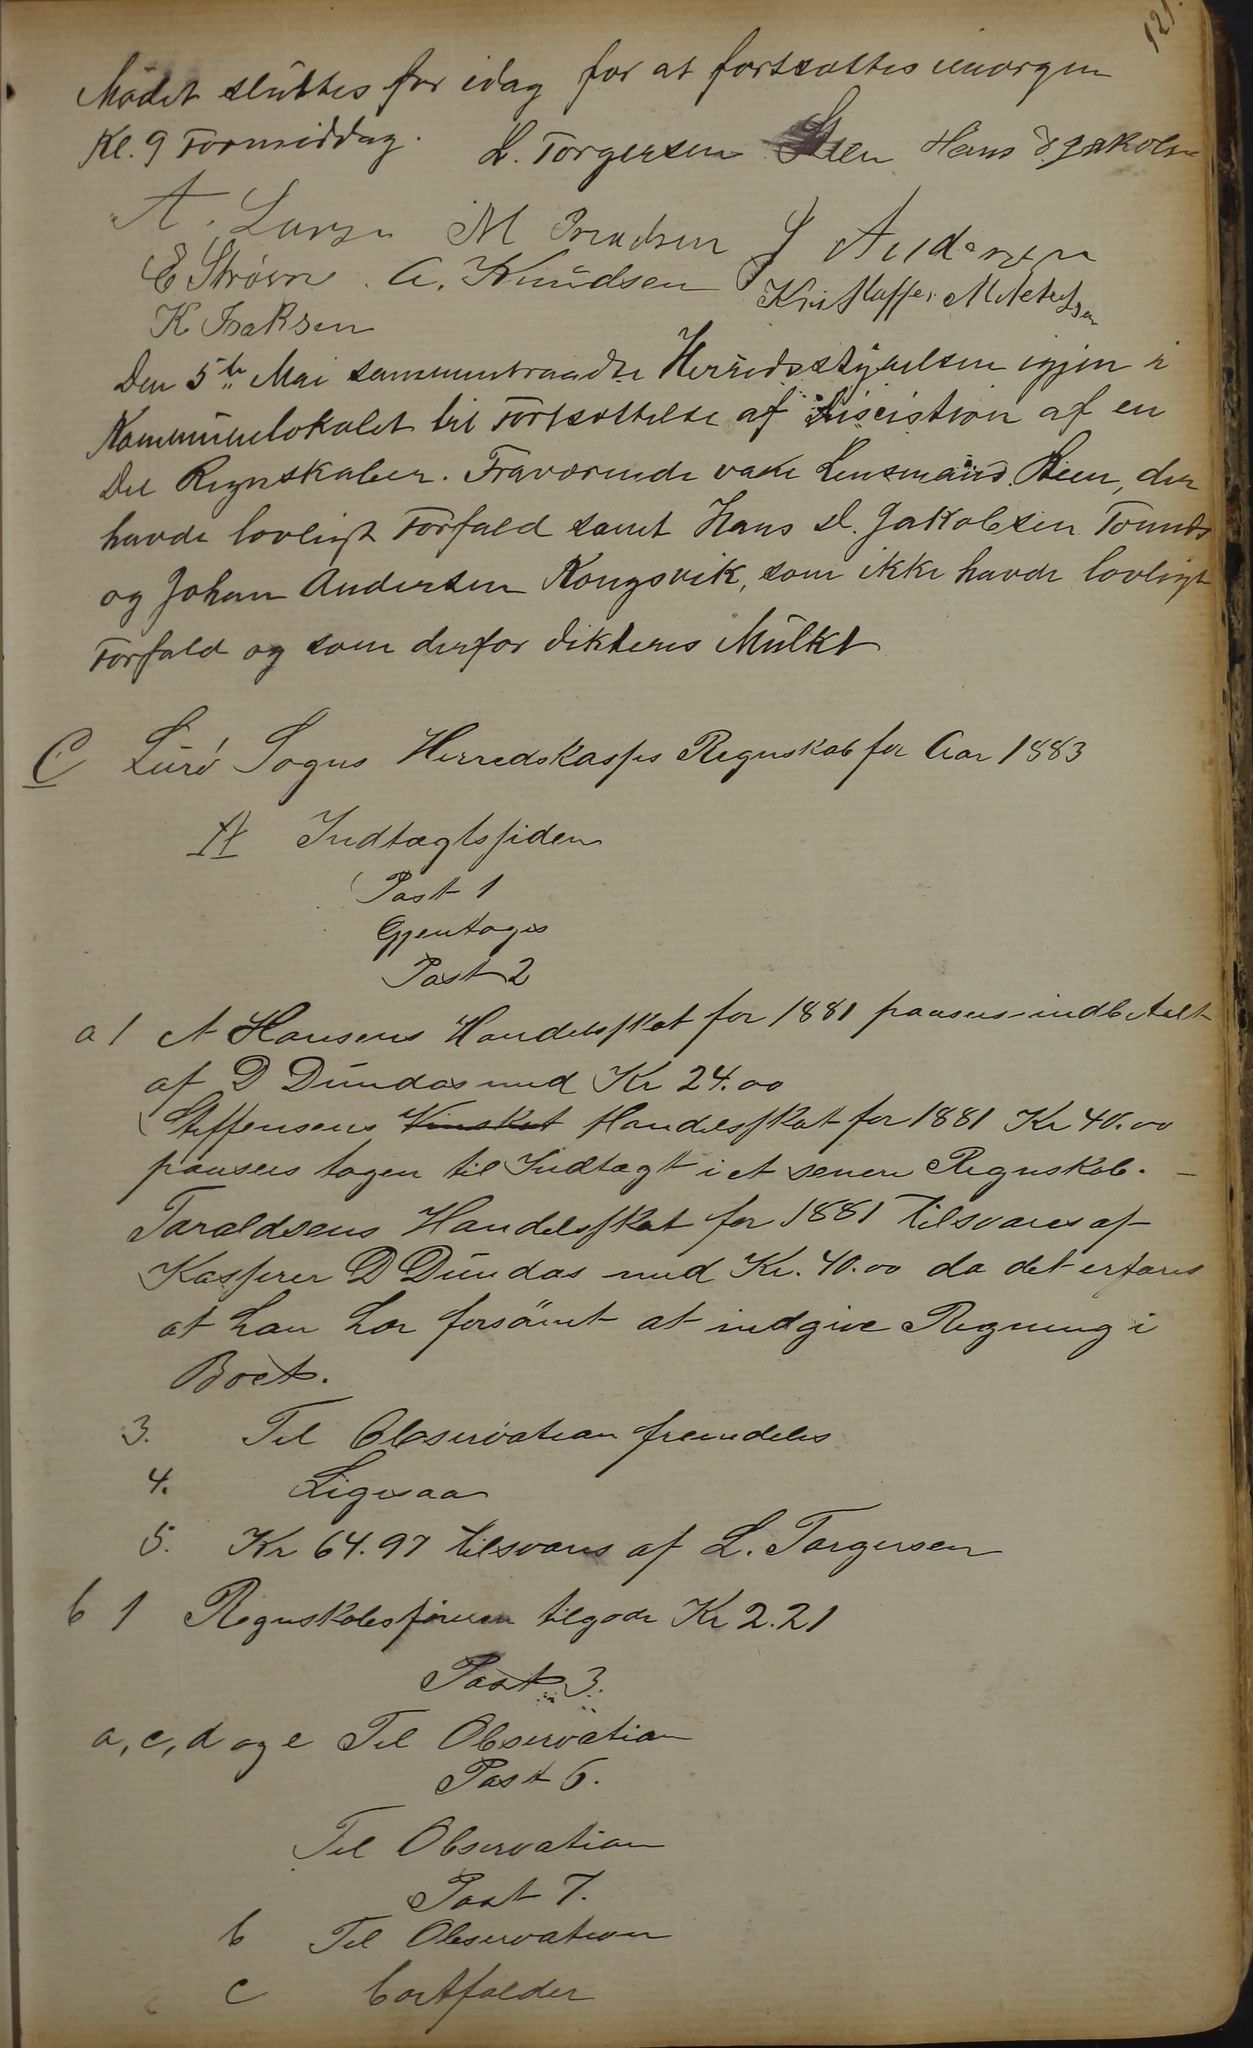 121.
Mødet sluttes for idag for at fortsættes imorgen
Kl. 9 Formiddag. L. Torgersen Steen Hans d. Jakobsen
A. Larsen M J Andersen
E Strøm. A. Knudsen Kristoffer Mikkelsen
K Isaksen
Den 5te Mai sammentraadte Herredsstyrelsen igjen i
Kommunelokalet til Fortsættelse af Discistion af en
Del Regnskaber. Fraværende vare Lensmand Steen, der
havde lovligt Forfald samt Hans d. Jakobsen
og Johan Andersen Kongsvik, som ikke havde lovligt
Forfald og som derfor dikteres Mulkt
C Lurø Sogns Herredskasses Regnskab for Aar 1883
A Indtægtssiden
Post 1
Gjentages
Post 2
a 1 A Hansens Handelsskat for 1881 paasees indbetalt
af D Dundas med Kr 24.00
Steffensens Vinskat Handelsskat for 1881 Kr 40.00
paasees tagen til Indtægt i et senere Regnskab. -
Taraldsens Handelsskat for 1881 tilsvares af
Kasserer D Dundas med Kr. 40.00 da det erfares
at han har forsömt at indgive Regning i
Boet.
3. Til Observation fremdeles
4. Ligesaa
5. Kr 64.97 tilsvares af L. Torgersen
b 1 Regnskabsføreren tilgode Kr 2.21
Post 3.
a, c, d og e Til Observation
Post 6.
Til Observation
Post 7.
b Til Observation
c bortfalder